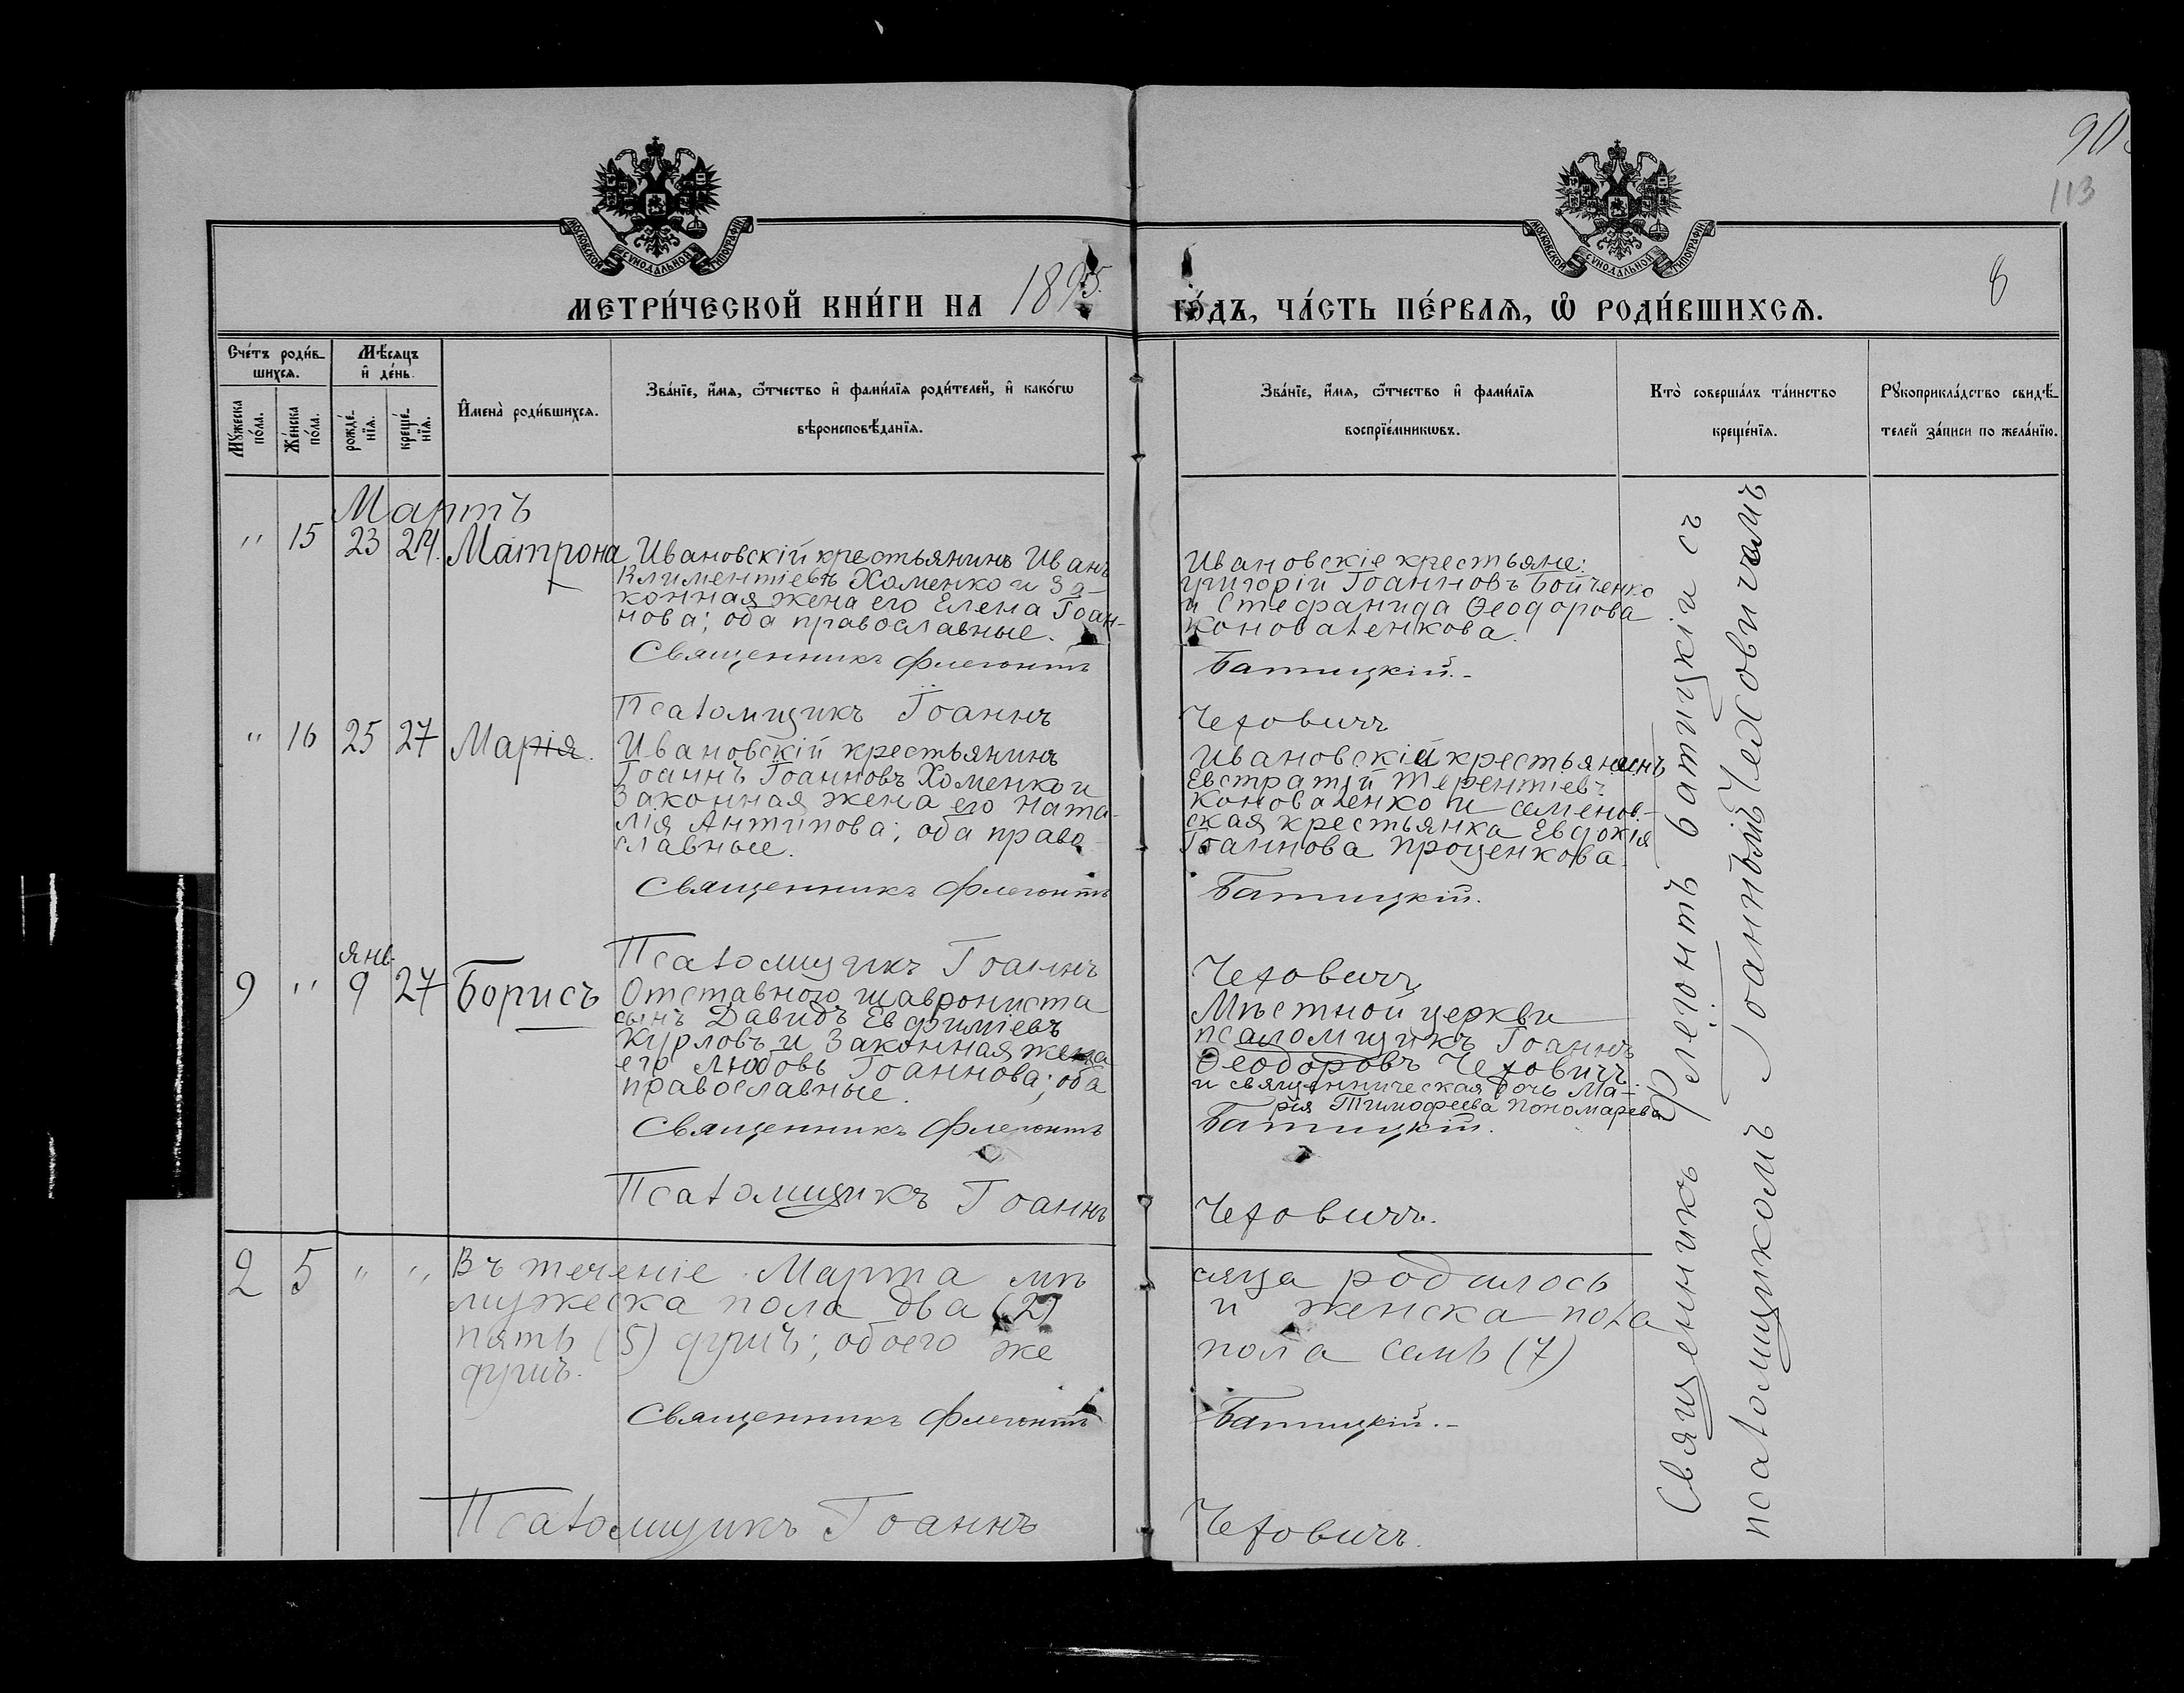 90
113
МОСКОВСКОЙ СѴНОДАЛЬНОЙ ТИПОГРАФІИ
МОСКОВСКОЙ СѴНОДАЛЬНОЙ ТИПОГРАФІИ
МЕТРИ́ЧЕСКОЙ КНИ́ГИ НА 1895.
ГО́ДЪ, ЧА́СТЬ ПЕ́РВАѦ, Ѡ҆ РОДИ́ВШИХСѦ.
8
Сче́тъ роди́в-
шихсѧ.
Мѣ́сѧцъ
и҆ де́нь.
Му́жеска
по́ла.
Же́нска
по́ла.
рожде́-
нїѧ.
креще́-
нїѧ.
И҆мена̀ роди́вшихсѧ.
Зва́нїе, и҆́мѧ, ѻ҆́тчество и҆ фами́лїѧ роди́телей, и҆ како́гѡ
вѣроисповѣ́данїѧ.
Зва́нїе, и҆́мѧ, ѻ҆́тчество и҆ фами́лїѧ
воспрїе́мникѡвъ.
Кто̀ соверша́лъ та́инство
креще́нїѧ.
Рꙋкоприкла́дство свидѣ́-
телей за́писи по жела́нїю.
Мартъ
" 15 23 24. Матрона
Ивановскій крестьянинъ Иванъ
Климентіевъ Хоменко и за-
конная жена его Елена Іоан-
нова; оба православные.
Священникъ Флегонтъ
Псаломщикъ Іоаннъ
Ивановскіе крестьяне:
Григорій Іоанновъ Бойченко
и Стефанида Ѳеодорова
Коноваленкова.
Батицкій.-
Чеховичъ
" 16 25 27 Марія.
Ивановскій крестьянинъ
Іоаннъ Іоанновъ Хоменко и
Законная жена его Ната-
лія Антипова; оба право
славные.
Священникъ Флегонтъ
Псаломщикъ Іоаннъ
Ивановскій крестьянинъ
Евстратій Терентіевъ
Коноваленко и семенов-
ская крестьянка Евдокія
Іоаннова Проценкова.
Батицкій.
Чеховичъ
янв.
9 " 9 27 Борисъ
Отставного
сынъ Давидъ Евфиміевъ
Курловъ и Законная жена
его Любовь Іоаннова; оба
православные.
Священникъ Флегонтъ
Псаломщикъ Іоаннъ
Мѣстной церкви
псаломщикъ Іоаннъ
Ѳеодоровъ Чеховичъ
и священническая дочь Ма-
рія Тимофеева Пономарева
Батицкій.
Чеховичъ.
Священникъ Флегонтъ Батицкій съ
псаломщикомъ Іоанномъ Чеховичемъ
2 5 " " Въ теченіе Марта мѣ
мужеска пола два (2)
пять (5) душъ; обоего же
душъ.
сяца родилось
и женска пола
пола семь (7)
Священникъ Флегонтъ
Батицкій.-
Псаломщикъ Іоаннъ
Чеховичъ.